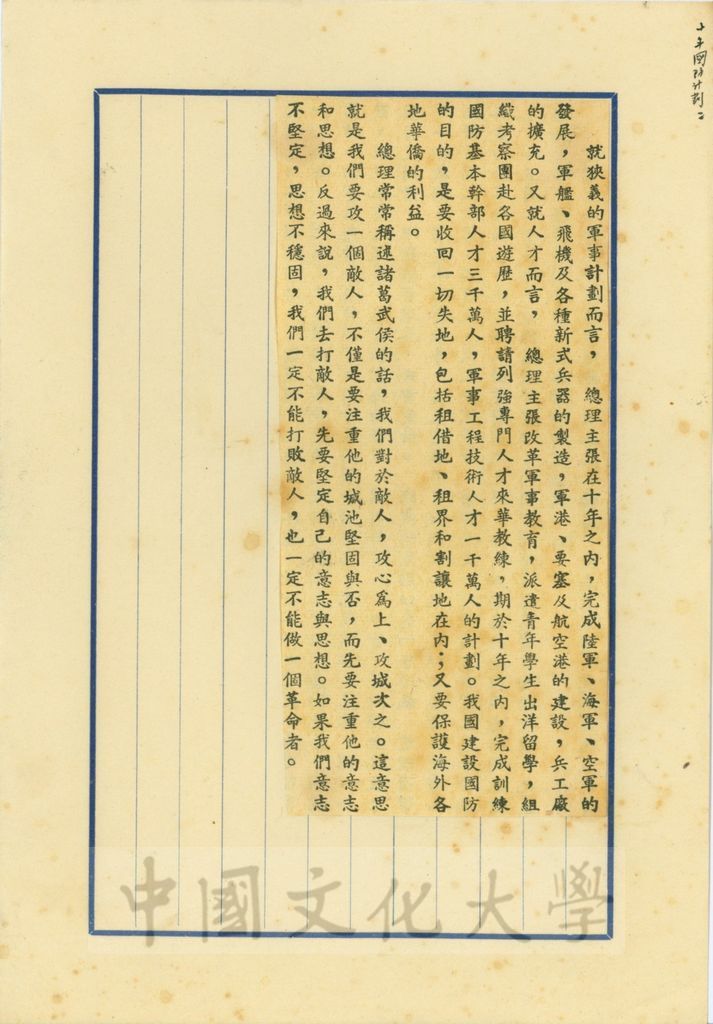 十年國防計劃二
就狹義的軍事計劃而言， 總理主張在十年之內，完成陸軍、海軍、空軍的
發展，軍艦、飛機及各種新式兵器的製造，軍港、要塞及航空港的建設，兵工廠
的擴充。又就人才而言， 總理主張改革軍事教育，派遣青年學生出洋留學，組
織考察團赴各國遊歷，並聘請列強專門人才來華教練，期於十年之內，完成訓練
國防基本幹部人才三千萬人，軍事工程技術人才一千萬人的計劃。我國建設國防
的目的，是要收回一切失地，包括租借地、租界和割讓地在內；又要保護海外各
地華僑的利益。
總理常常稱述諸葛武侯的話，我們對於敵人，攻心為上、攻城次之。這意思
就是我們要攻一個敵人，不僅是要注重他的城池堅固與否，而先要注重他的意志
和思想。反過來說，我們去打敵人，先要堅定自己的意志與思想。如果我們意志
不堅定，思想不穩固，我們一定不能打敗敵人，也一定不能做一個革命者。
中國文化大學